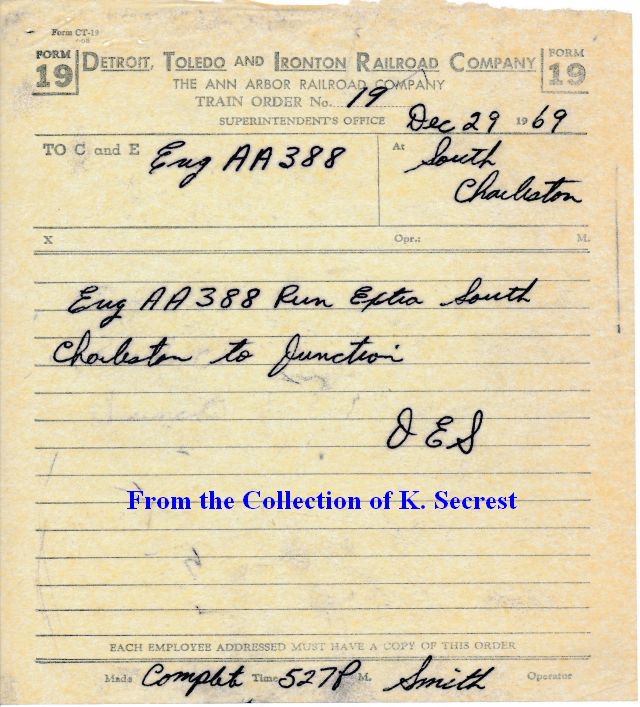 Form CT-19
FORM 19 DETROIT, TOLEDO AND IRONTON RAILROAD COMPANY FORM 19
THE ANN ARBOR RAILROAD COMPANY
TRAIN ORDER No. 19
SUPERINTENDENT'S OFFICE Dec 29 1969
TO C and E Eng AA 388 At South
Charleston
X Opr.: M.
Eng AA 388 Run Extra South
Charleston to Junction
J E S
From the Collection of K. Secrest
EACH EMPLOYEE ADDRESSED MUST HAVE A COPY OF THIS ORDER
Made Complete Time 527P M. Smith Operator